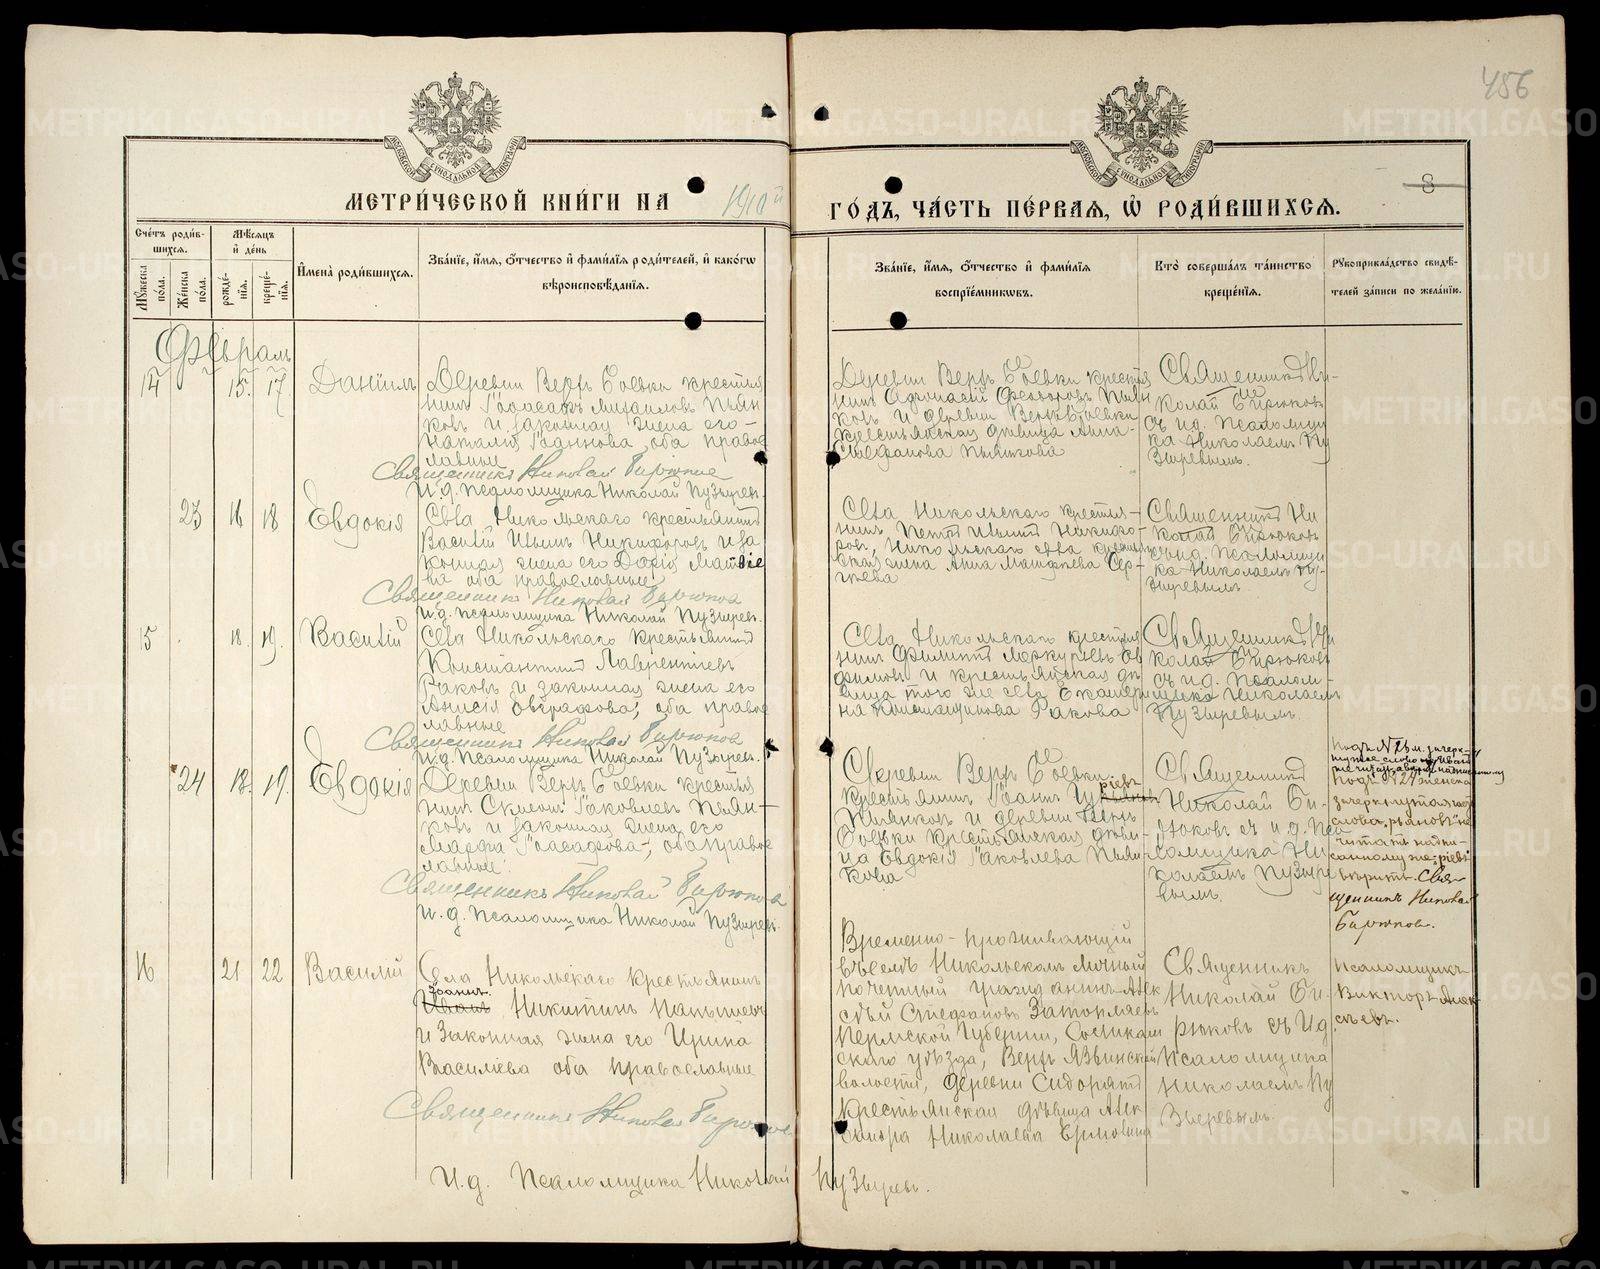 456
8
МЕТРИ́ЧЕСКОЙ КНИ́ГИ НА 1910й ГО́ДЪ, ЧА́СТЬ ПЕ́РВАЯ, Ѽ РОДИ́ВШИХСЯ.
Счéтъ роди́в-
шихся.
Мꙋ́жеска по́ла.
Же́нска по́ла.
Мѣ́сяцъ и҆ де́нь
рожде́-
нїя.
креще́-
нїя.
И҆мена̀ роди́вшихся.
Зва́нїе, и҆́мя, ѻ҆́тчество и҆ фами́лїя роди́телей, и҆ како́гѡ
вѣроисповѣ́данїя.
Зва́нїе, и҆́мя, ѻ҆́тчество и҆ фами́лїя
воспрїе́мникѡвъ.
Кто̀ соверша́лъ та́инство
креще́нїя.
Рꙋкоприкла́дство свидѣ́-
телей за́писи по жела́нїю.
Февраль
14 15. 17 Данїилъ
Деревни Верхъ Боевки крестья
нинъ Іоасафъ Михаиловъ Пьян
ковъ и законная жена его
Наталія Іоаннова, оба право
славные
Священникъ Николай Бирюков
И.д. псаломщика Николай Пузырев.
Деревни Верхъ Боевки крестья
нинъ Афанасій Феодоровъ Пьян
ковъ и деревни Верхъ Боевки
крестьянская дѣвица Анна
Стефанова Пьянкова
Священникъ Ни-
колай Бирюковъ
съ и.д. псаломщи
ка Николаемъ Пу
зыревымъ.
23 16 18 Евдокія
Села Никольскаго крестьянинъ
Василій Никифоровъ и за
конная жена его Дарія Матѳіе
ва оба православные
Священникъ Николай Бирюков
И.д. псаломщика Николай Пузырев.
Села Никольскаго крестья-
нинъ Петръ Никифо-
ровъ, Никольскаго села крестьян
ская жена Анна Сер-
гѣева
Священникъ Ни
колай Бирюковъ
съ и.д. псаломщи
ка Николаемъ Пу-
зыревымъ.
15 18. 19. Василій
Села Никольскаго крестьянинъ
Константинъ Лаврентіевъ
Раковъ и законная жена его
Анисія Евграфова, оба право
славные
Священникъ Николай Бирюков
И.д. псаломщика Николай Пузырев.
Села Никольскаго крестья
нинъ Филиппъ Меркурьевъ Ев
фимовъ и крестьянская дѣ
вица того же села Екатери
на Константинова Ракова
Священникъ Ни
колай Бирюковъ
съ и.д. псалом-
щика Николаемъ
Пузыревымъ.
24 18. 19. Евдокія
Деревни Верхъ Боевки крестья
нинъ Іаковлевъ Пьян-
ковъ и законная жена его
Марфа Іоасафова, оба право
славные.
Священникъ Николай Бирюков
И.д. псаломщика Николай Пузырев.
Деревни Верхъ Боевки
крестьянинъ Іоаннъ ріевъ
Пьянковъ и деревни Верхъ
Боевки крестьянская дѣви
ца Евдокія Іаковлева Пьян
кова
Священникъ
Николай Би-
рюковъ съ и.д. пса
ломщика Ни
колаемъ Пузыре
вымъ.
Подъ № 24 женска
зачеркнутая
слова „рьяновъ“ не
читать надпи-
санному же „ріевъ“
вѣрить. Свя-
щенникъ Николай
Бирюков.
16 21 22 Василій
Села Никольскаго крестьянинъ
Іоаннъ
Иванъ Никитинъ Патышевъ
и законная жена его Ирина
Василіева оба православные
Священникъ Николай Бирюков
И.д. Псаломщика Николай Пузырев.
Временно-проживающій
въ селѣ Никольскомъ личный
почетный гражданинъ Алек
сѣй Стефановъ Затопляевъ
Пермской Губерніи, Соликам
скаго уѣзда, Верхъ Язвинской
волости, деревни Сидорята
крестьянская дѣвица Алек
сандра Николаева Ермовина
Священникъ
Николай Би-
рюковъ съ И.д.
Псаломщика
Николаемъ Пу
зыревымъ.
Псаломщикъ
Викторъ Алек-
сѣевъ.